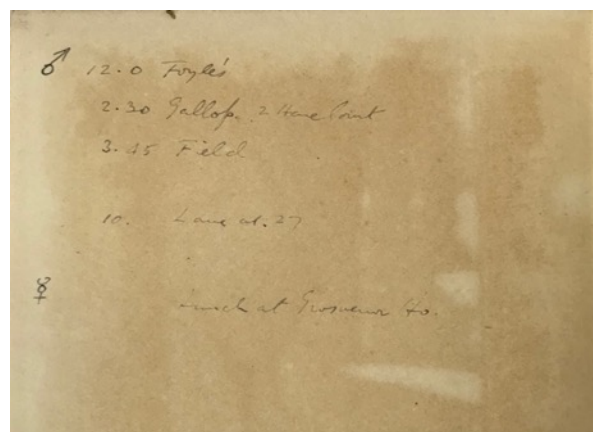 ♂ 12.0 Foyle's
2.30 Gallop. 2 Hare Court
3.45 Field
10. Lane at. 27
☿ Lunch at Grosvenor Ho.